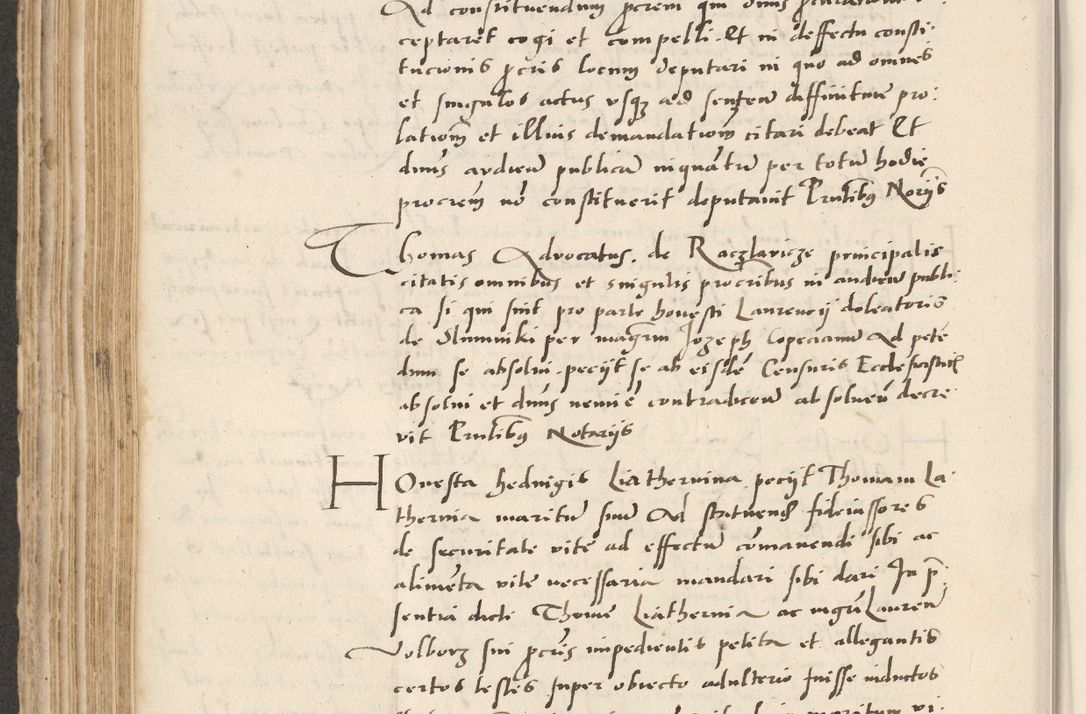 Ad constituendum procrem qui onus
ceptaret cogi et compelli. Et in deffectu consti:
tucionis procris locum deputari in quo ad omnes
et singulos actus usq ad senten diffinitiuie pro:
lationem et illius demandationem citari debeat Et
dnus audien publicam inquantu per totu hodie
procrem no constituerit deputauit Pntibus Norys
Thomas Advocatus. de Raczlavicze principalis
citatis omnibus et singulis procribus in audien publi:
ca si qui sint pro parte honesti Laurencij doleatoris
de Slumniki per magrum Jozeph Copeciamu Ad peten
dum se absolui. pecijt se ab eisdem Censuris Ecclesiasticis
absolui et dnus nemine contradicen absoluen decre
vit Pntibus Notarijs
Honesta heduigis Liathernina pecijt Thomam La:
thernia maritu suu Ad statuend fideiussores
de securitate vite ad effectu comanendi sibi ac
alimenta vite necessaria mandari sibi dari In p:
sentia dicti Thome Liathernia ac mgri Lauren
Volborz sui procris impedientis petita et allegantis
certos testes super obiecto adulterio fuisse inductos
maritum vi: